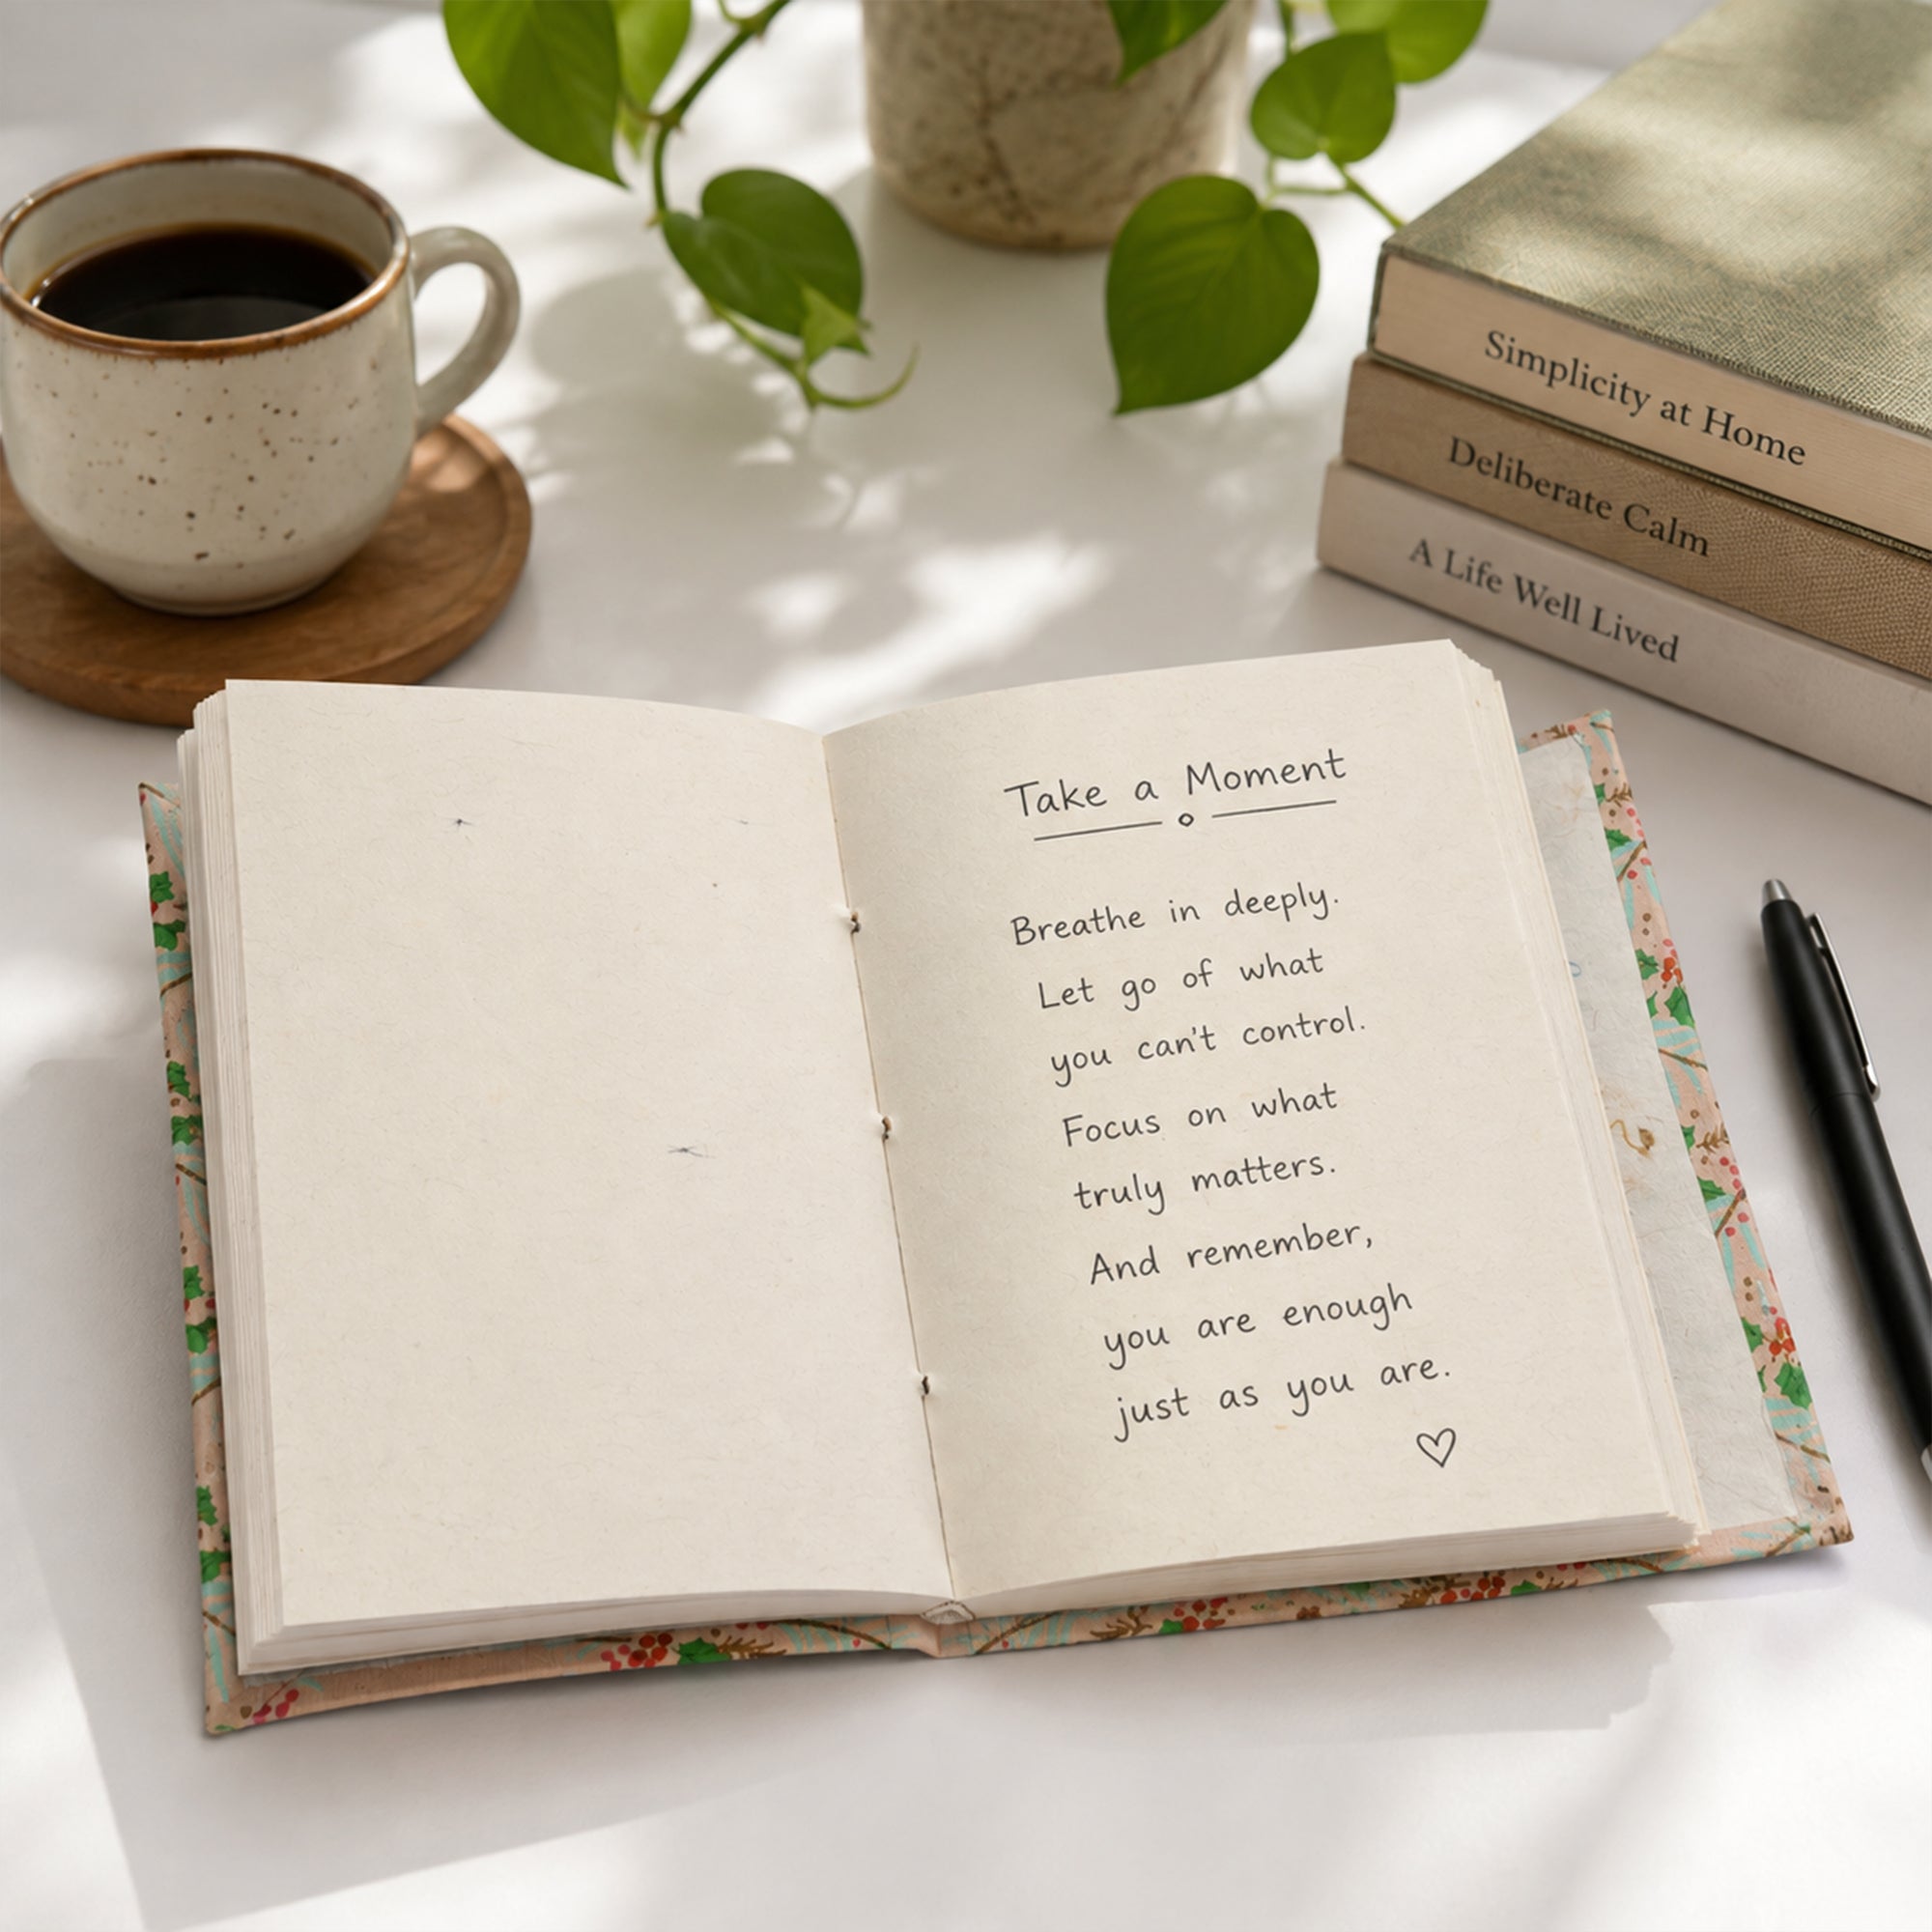 Simplicity at Home
Deliberate Calm
A Life Well Lived
Take a Moment
Breathe in deeply.
Let go of what
you can't control.
Focus on what
truly matters.
And remember,
you are enough
just as you are.